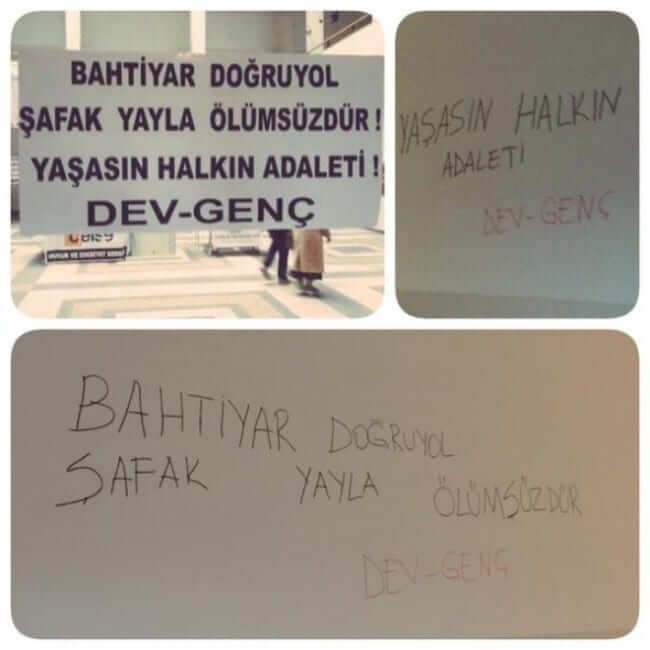 BAHTİYAR DOĞRUYOL
ŞAFAK YAYLA ÖLÜMSÜZDÜR !
YAŞASIN HALKIN ADALETİ !
DEV-GENÇ
YAŞASIN HALKIN
ADALETİ
DEV-GENÇ
BAHTİYAR DOĞRUYOL
ŞAFAK YAYLA ÖLÜMSÜZDÜR
DEV-GENÇ